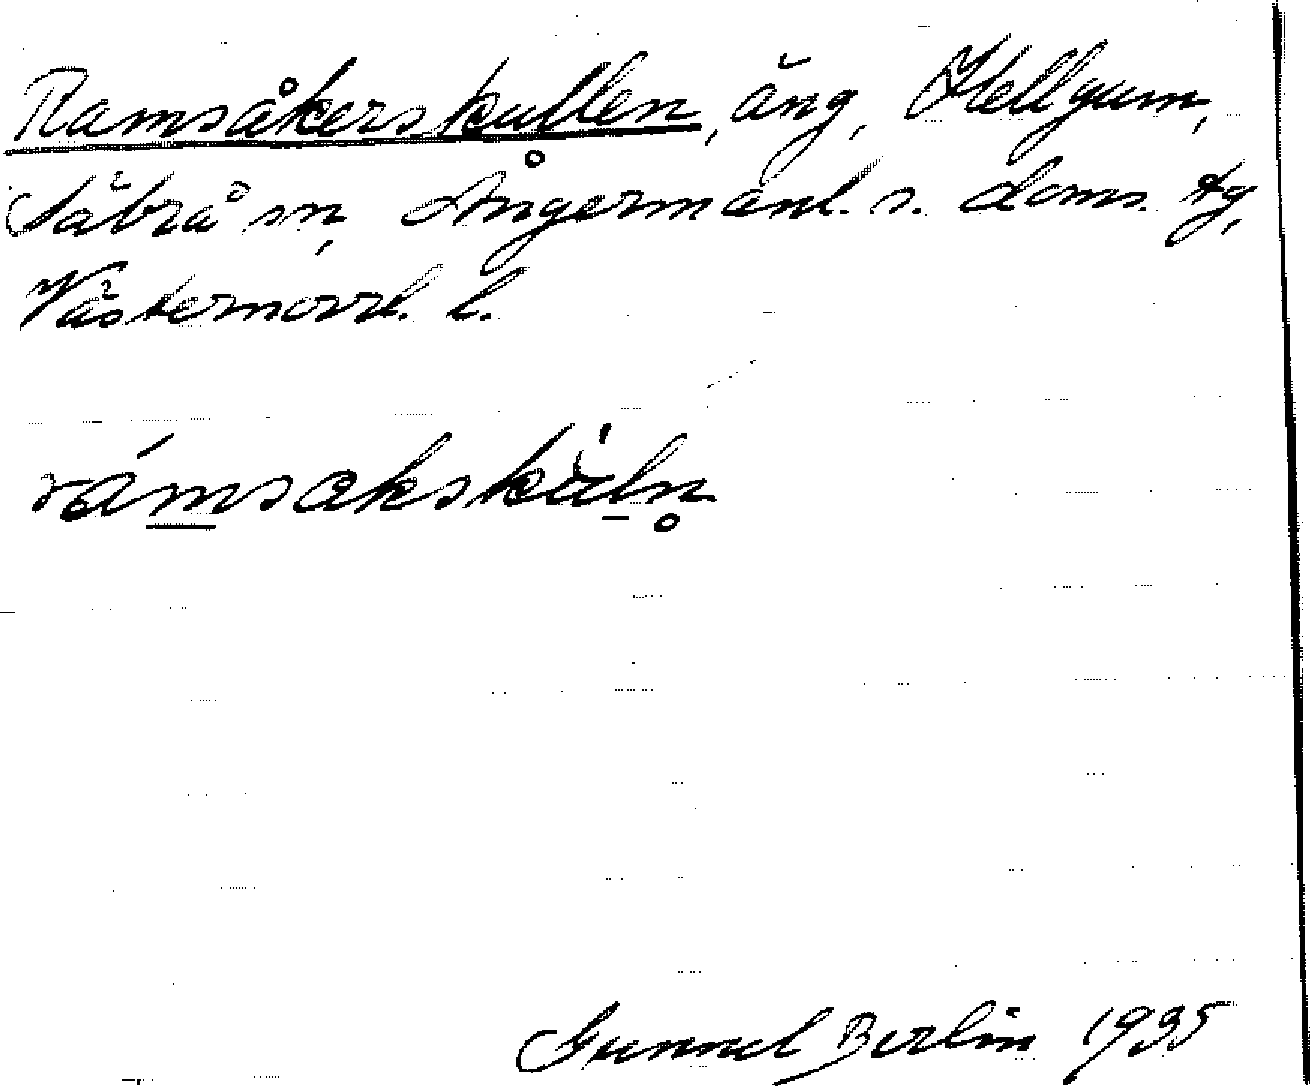 Ramsåkerskullen, äng, Hellgum,
Säbrå sn, Ångermanl. s. doms. tg,
Västernorrl. l.
rámsakskùln̥
Gunnel Berlin 1935